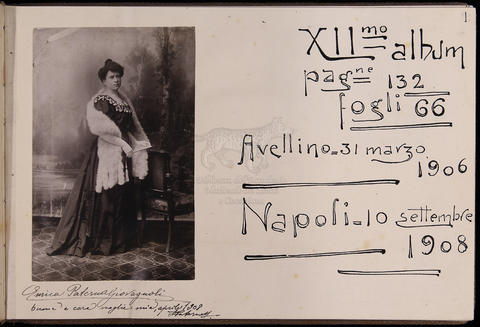 1
XII mo album
pag ne 132
fogli 66
Avellino - 31 marzo
1906
Napoli - 10 settembre
1908
Enrica Paterna Giovagnoli
buona e cara moglie mia aprile 1908